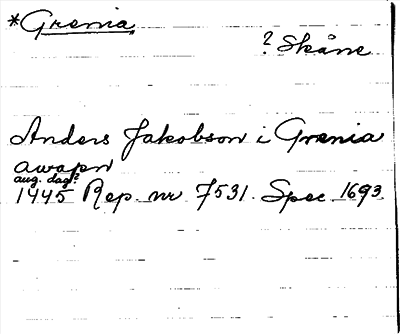 *Grenia.
? Skåne
Anders Jakobson i Grenia
awapn
aug. dag?
1445 Rep. nr 7531. Spec 1693